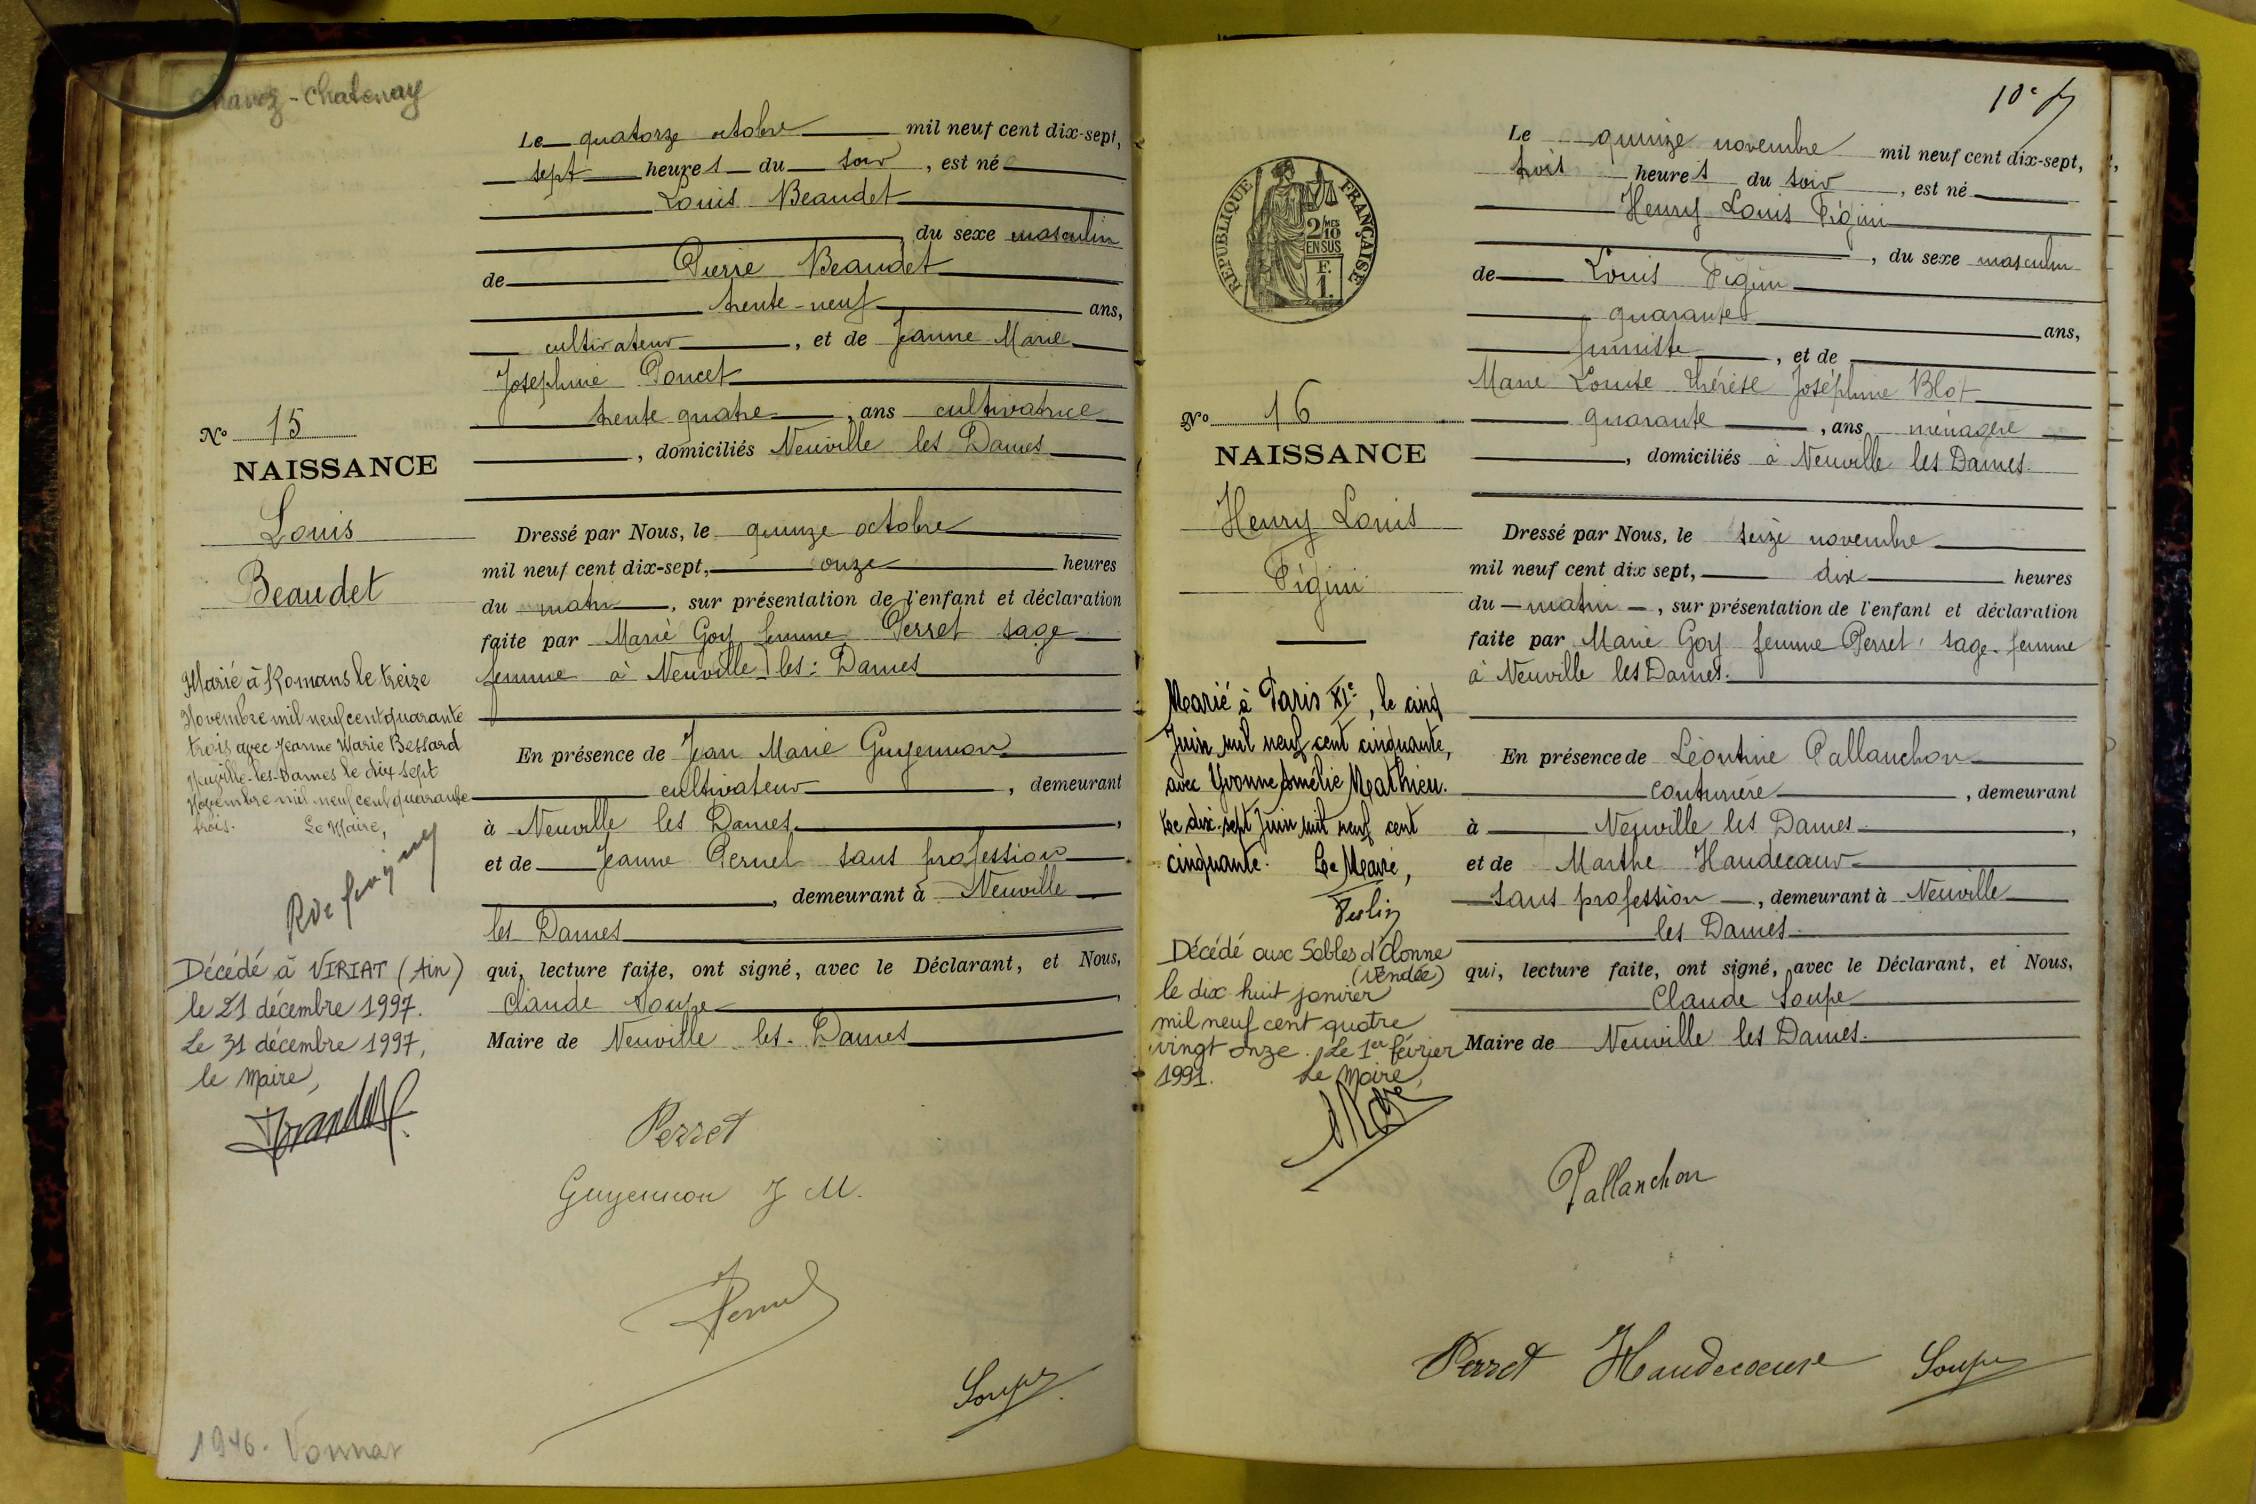 Chatenay
Le quatorze octobre mil neuf cent dix-sept,
sept heures du soir, est né
Louis Beaudet
du sexe masculin
de Pierre Beaudet
trente-neuf ans,
cultivateur, et de Jeanne Marie
Joséphine Poncet
trente quatre, ans cultivatrice
, domiciliés Neuville les Dames
N° 15
NAISSANCE
Louis
Beaudet
Dressé par Nous, le quinze octobre
mil neuf cent dix-sept, onze heures
du matin, sur présentation de l'enfant et déclaration
faite par Marie Goy femme Perret sage
femme à Neuville les Dames
En présence de Jean Marie Guyennon
cultivateur, demeurant
à Neuville les Dames,
et de Jeanne Pernet sans profession
, demeurant à Neuville
les Dames
qui, lecture faite, ont signé, avec le Déclarant, et Nous,
Claude Soupe
Maire de Neuville les Dames
Marié à Romans le treize
Novembre mil neuf cent quarante
trois avec Jeanne Marie Bessard
Neuville-les-Dames le dix sept
Novembre mil neuf cent quarante
trois. Le Maire,
Décédé à VIRIAT (Ain)
le 21 décembre 1997.
Le 31 décembre 1997,
le Maire,
Perret
Guyennon J M.
Pernet
Soupe
1946. Vonnas
10e
REPUBLIQUE FRANÇAISE
2/10
EN SUS
F.
1.
Le quinze novembre mil neuf cent dix-sept,
trois heures du soir, est né
Henry Louis Pigini
, du sexe masculin
de Louis Pigini
quarante ans,
fumiste, et de
Marie Louise Thérèse Joséphine Blot
quarante, ans ménagère
, domiciliés à Neuville les Dames.
N° 16
NAISSANCE
Henry Louis
Pigini
Dressé par Nous, le seize novembre
mil neuf cent dix sept, dix heures
du matin, sur présentation de l'enfant et déclaration
faite par Marie Goy femme Perret, sage-femme
à Neuville les Dames.
En présence de Léontine Pallanchon
couturière, demeurant
à Neuville les Dames,
et de Marthe Haudecœur
sans profession, demeurant à Neuville
les Dames
qui, lecture faite, ont signé, avec le Déclarant, et Nous,
Claude Soupe
Maire de Neuville les Dames.
Marié à Paris XIe, le cinq
Juin mil neuf cent cinquante,
avec Yvonne Amélie Mathieu.
Le dix-sept Juin mil neuf cent
cinquante. Le Maire,
Décédé aux Sables d'Olonne
(Vendée)
le dix huit janvier
mil neuf cent quatre
vingt onze. Le 1er février
1991. Le Maire,
Pallanchon
Perret Haudecoeur Soupe